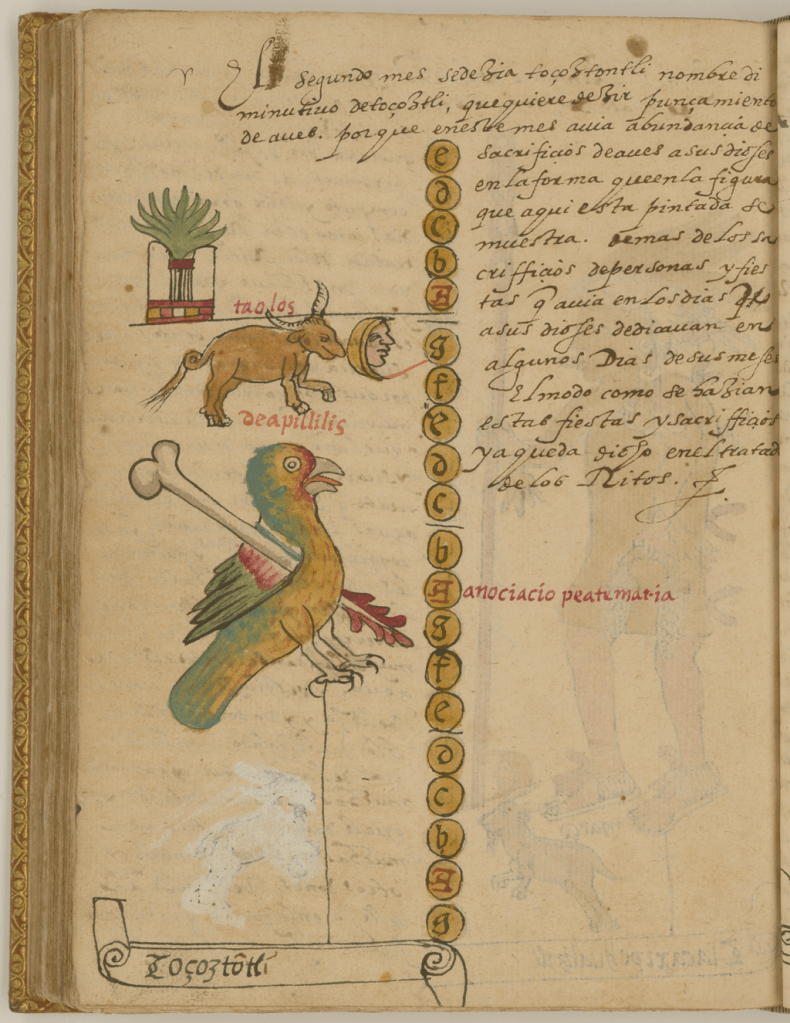 El segundo mes sedezia toçoztontli nombre di
minutivo detoçoztli, quequiere dezir punçamiento
de aves. porque eneste mes avia abundancia de
sacrificios deaves asusdioses
enlaforma queenla figura
que aqui esta pintada se
muestra. demas delos sa
crifficios depersonas yfies
tas q̃ avia enlosdias
asus dioses dedicavan en
algunos Dias desus meses
El modo como se hazian
estas fiestas ysacrifficios
yaqueda dicho enel tratad
delos Ritos.
e
d
c
b
A
g
f
e
d
c
b
A
g
f
e
d
c
b
A
g
taolos
deapillilis
anociacio peatumaria
Toçoztõtli